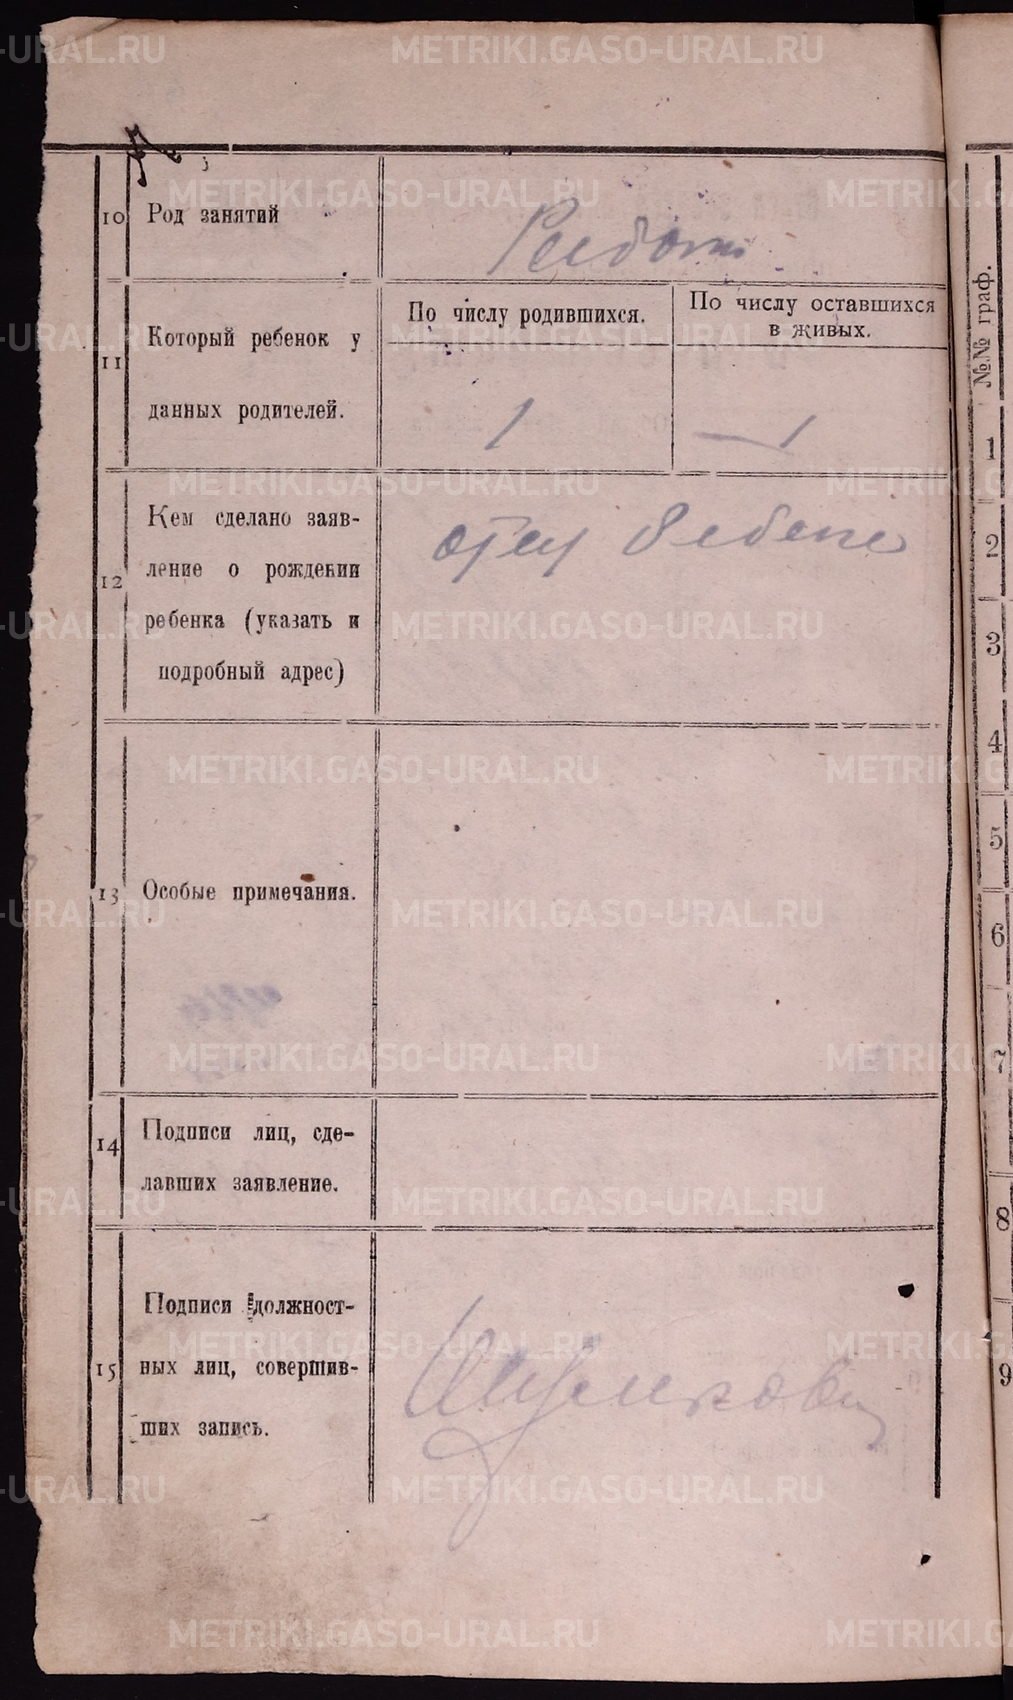 METRIKI.GASO-URAL.RU
10 Род занятий
По числу родившихся.
По числу оставшихся
в живых.
11 Который ребенок у
данных родителей.
1
— 1
12 Кем сделано заяв-
ление о рождении
ребенка (указать и
подробный адрес)
отец
13 Особые примечания.
14 Подписи лиц, сде-
лавших заявление.
15 Подписи должност-
ных лиц, совершив-
ших запись.
№№ граф.
1
2
3
4
5
6
7
8
9